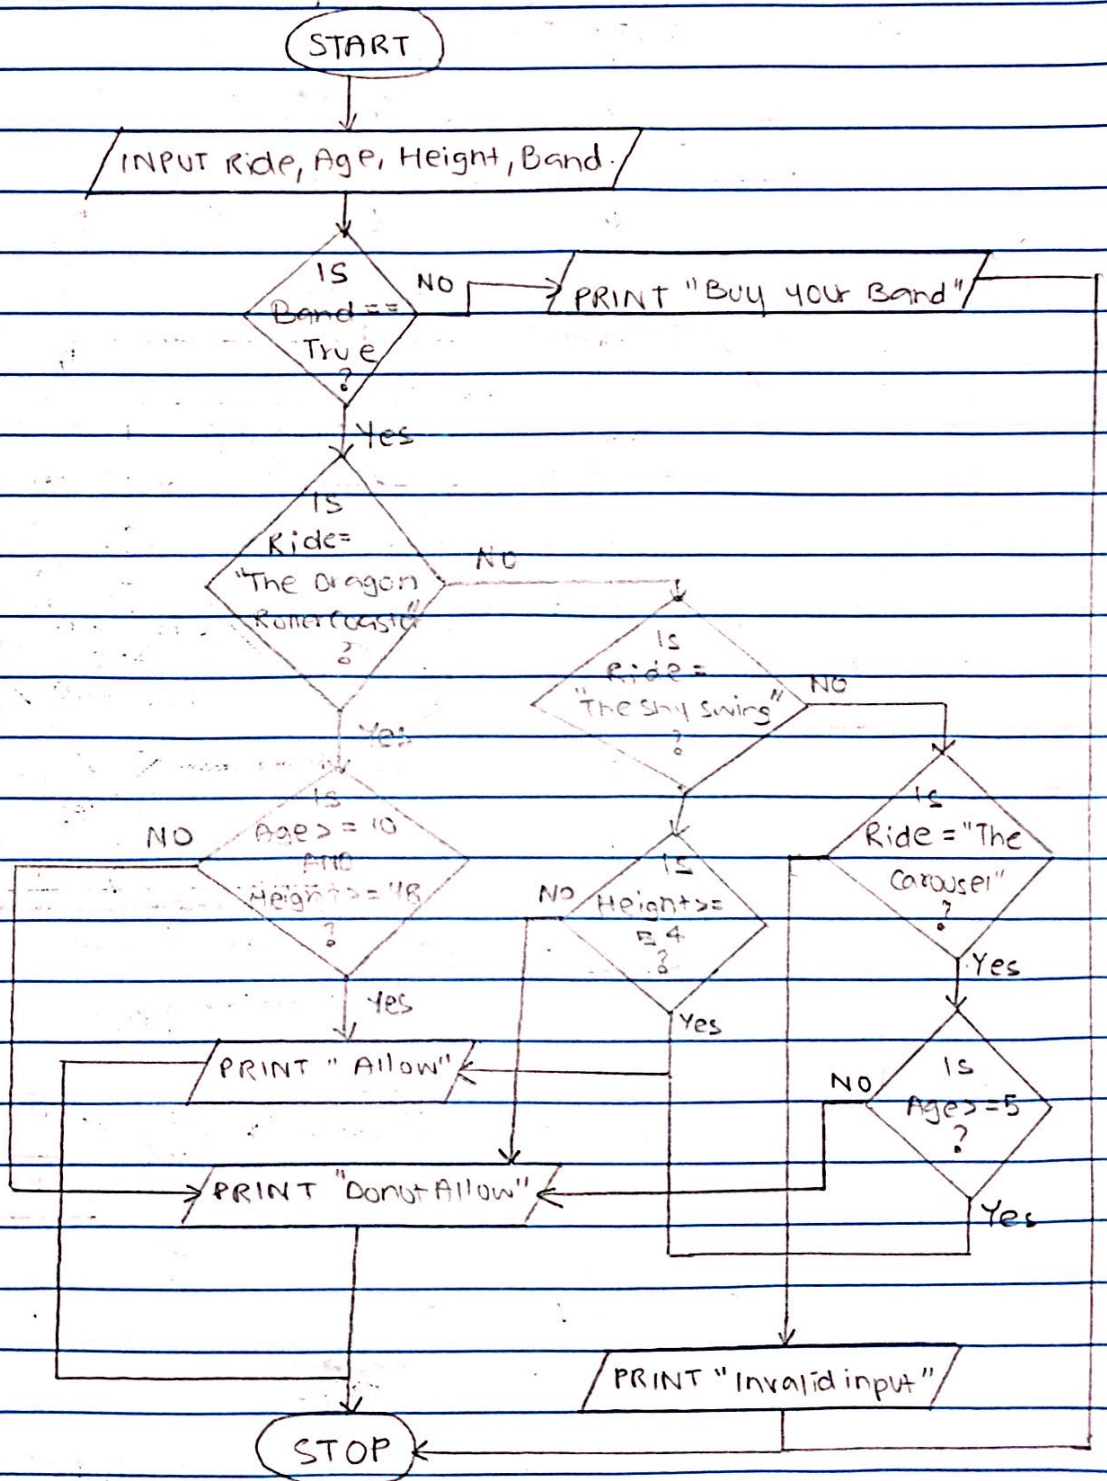 START
INPUT Ride, Age, Height, Band.
IS
Band ==
True
?
NO
PRINT "Buy your Band"
Yes
IS
Ride=
"The Dragon
Rollercoaster"
?
NO
Yes
IS
Ride =
"The Sky Swing"
?
NO
IS
Age >= 10
AND
Height >= 48
?
NO
Yes
IS
Height >=
54
?
NO
Yes
IS
Ride = "The
Carousel"
?
Yes
PRINT "Allow"
IS
Age >= 5
?
NO
Yes
PRINT "Donot Allow"
PRINT "Invalid input"
STOP